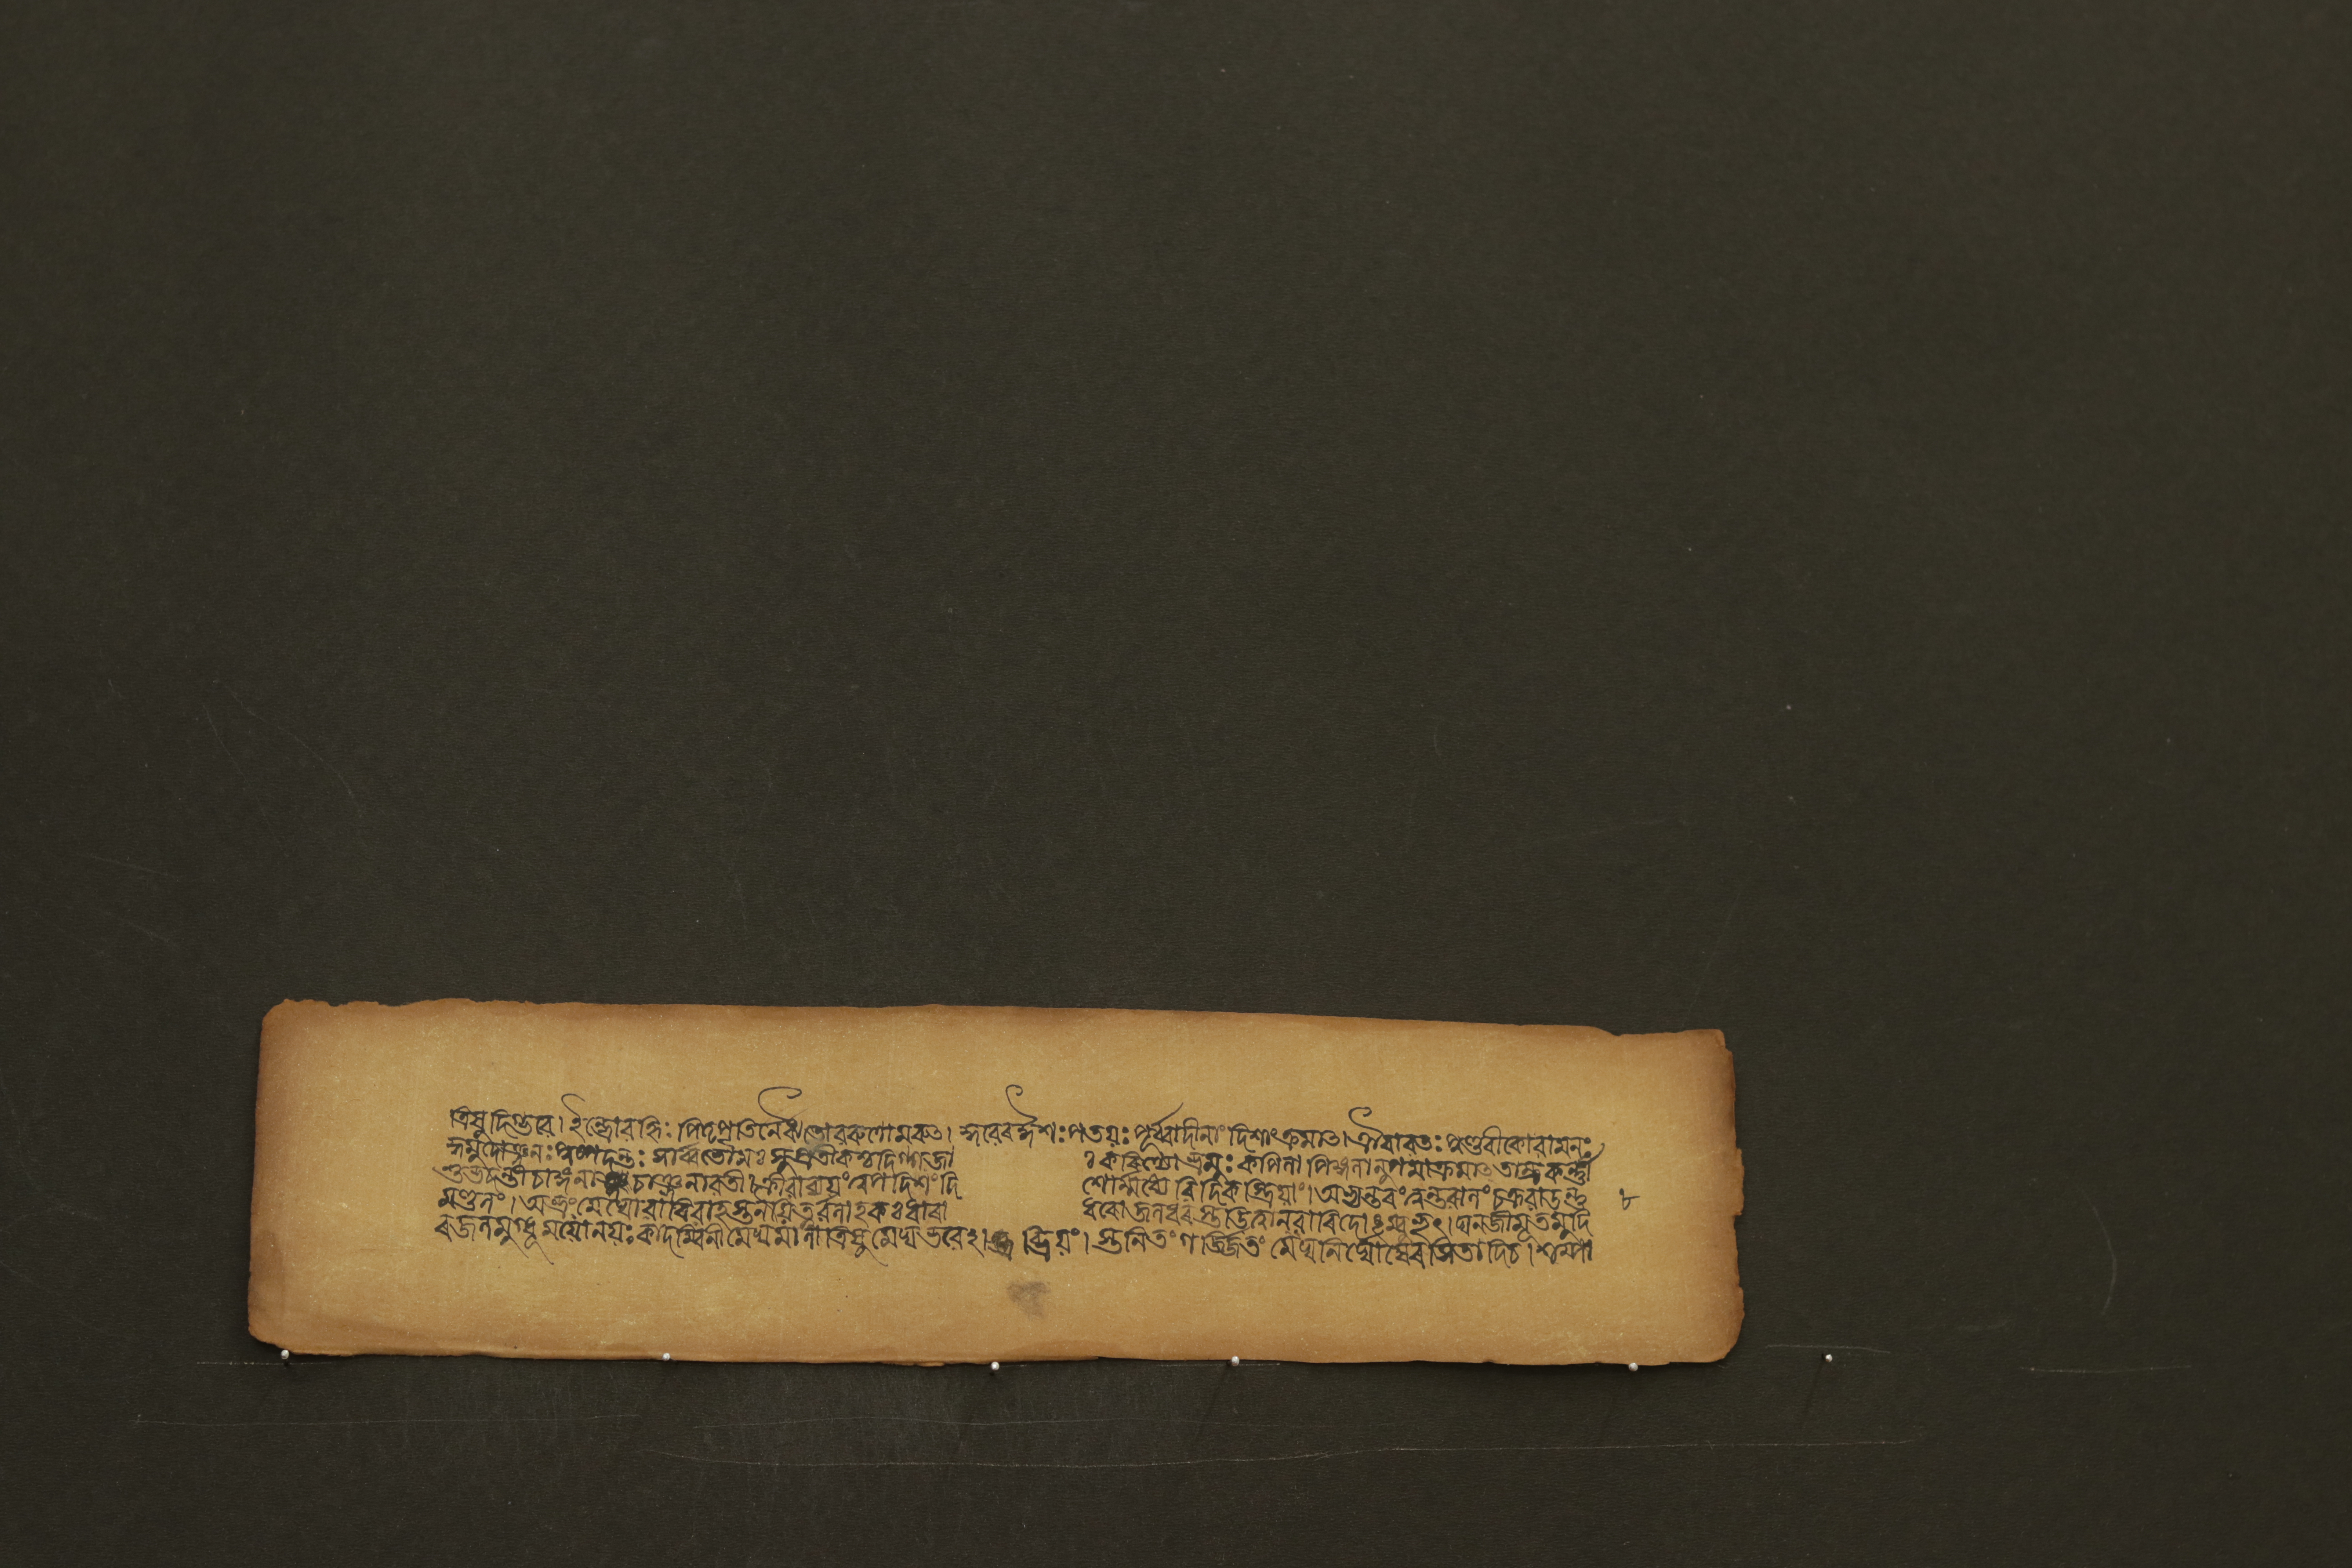 ত্রিষু দিগ্ভবে। ইন্দ্রোবহ্নিঃ পিতৃপতির্নৈঋতোবরুণোমরুৎ। কুবেরঈশঃপতয়ঃ পূর্ব্বাদীনাং দিশাংক্রমাৎ। ঐরাবতঃ পুণ্ডরীকোবামনঃ
কুমুদোঞ্জনঃ পুষ্পদন্তঃ সার্ব্বভৌমঃ সুপ্রতীকশ্চদিগ্গজা ঃ করিণ্যোভ্রমুঃ কপিলা পিঙ্গলানুপমাঃক্রমাৎ তাম্রকর্ণী
শুভ্রদন্তীচাঙ্গনা চাঞ্জনাবতী। ক্লীবাব্যয়ং ত্বপদিশং দি শোর্ম্মধ্যে বিদিক্স্ত্রিয়াং। অভ্যন্তরং ত্বন্তরালং চক্রবালন্তু
মণ্ডলং। অভ্রং মেঘোবারিবাহঃস্তনয়িত্নুর্বলাহকঃ ধারা ধরোজলধরস্তড়িত্বান্বারিদোঽম্বুভৃৎ। ঘনজীমূতমুদি
রজলমুগ্ধূময়োনয়ঃ কাদম্বিনী মেঘমালা ত্রিষু মেঘভবেঽভ্রিয়ং। স্তনিতং গর্জ্জিতং মেঘনির্ঘোষে রসিতাদিচ। শম্পা
৮